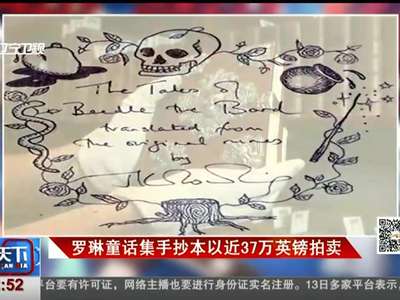 辽宁卫视
The Tales of
Beedle the Bard
translated from
the original runes
by
罗琳童话集手抄本以近37万英镑拍卖
天下
:52
平台要有许可证，网络主播也要进行身份证实名注册。13日多家平台表示，